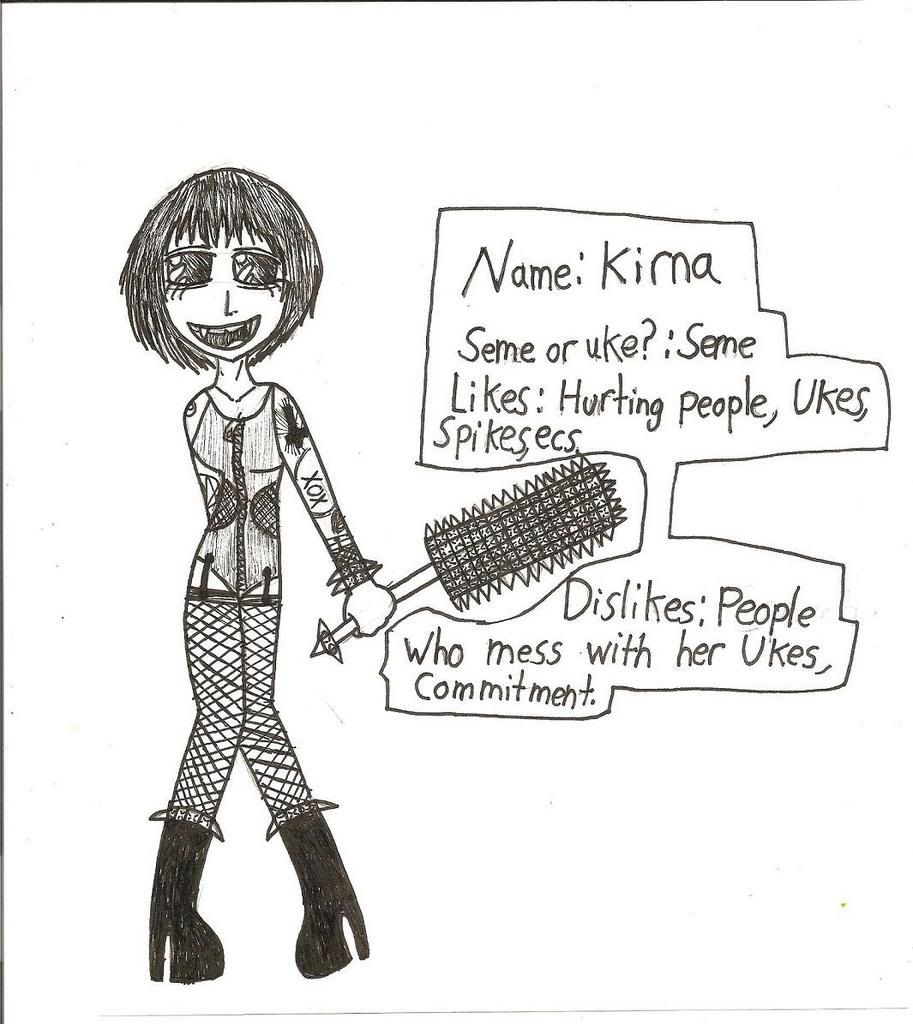 Name: Kirna
Seme or uke?: Seme
Likes: Hurting people, Ukes,
Spikes,ecs.
XOX
Dislikes: People
who mess with her Ukes,
Commitment.